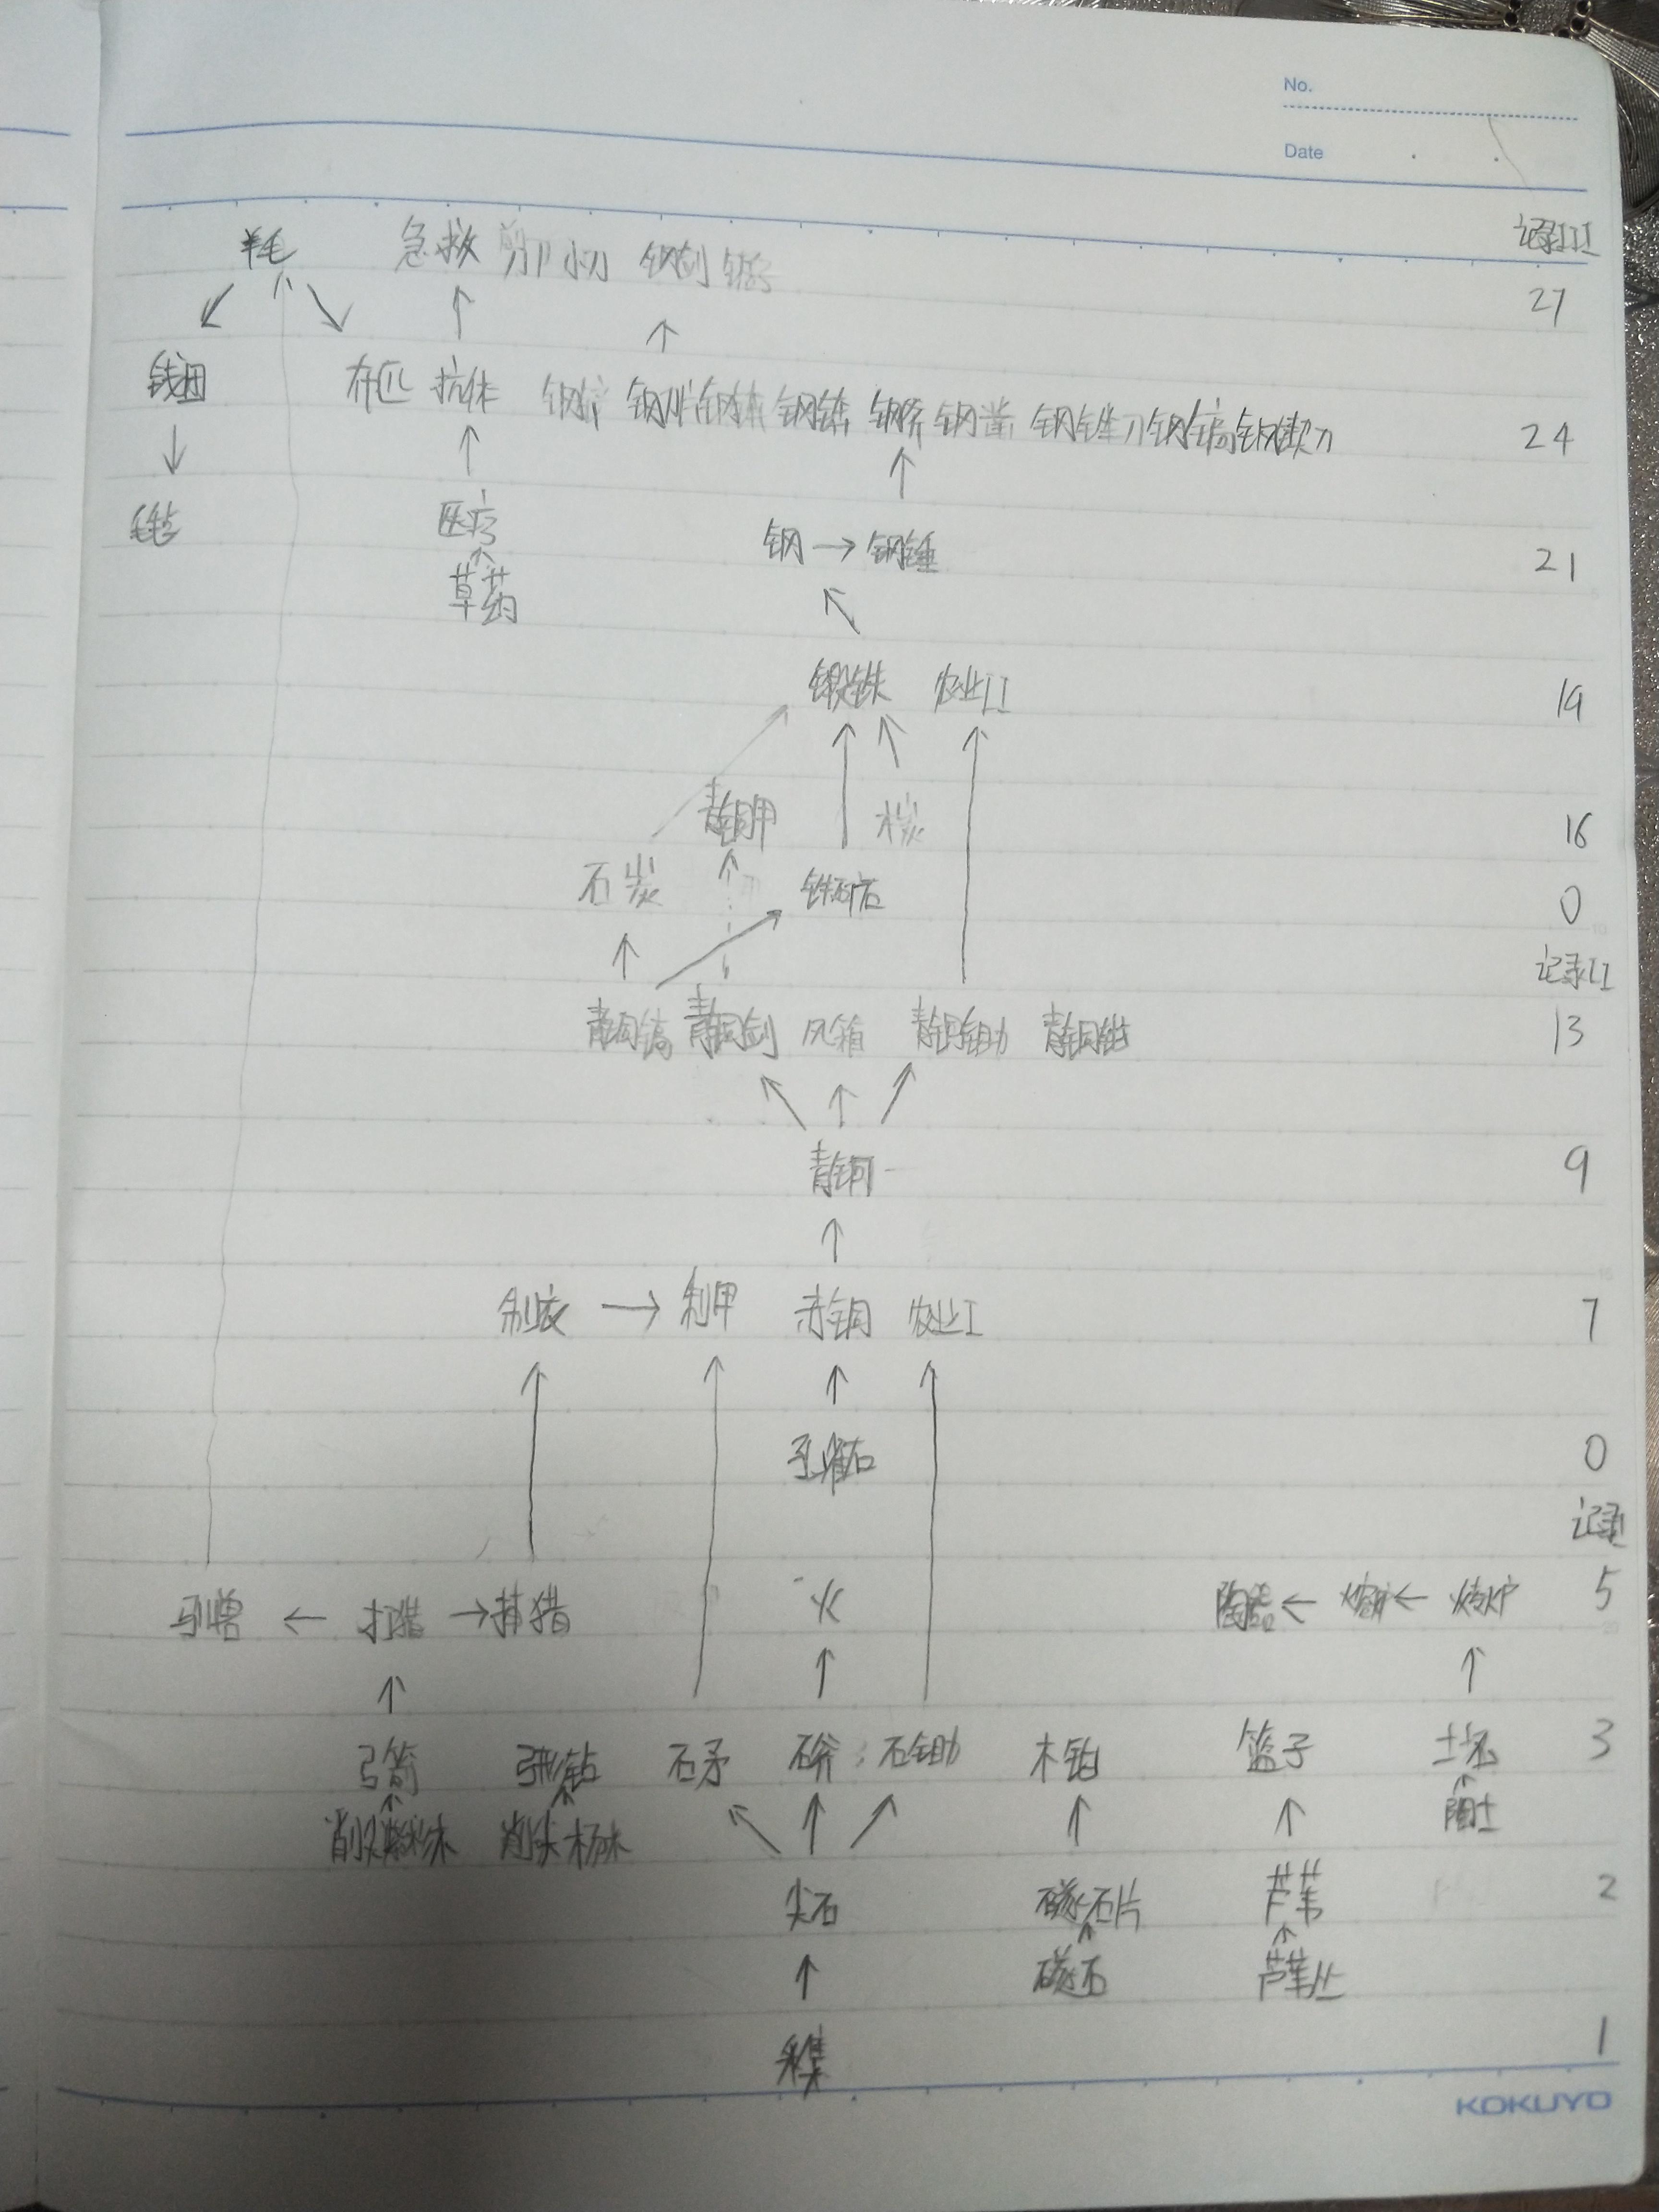 No.
Date
羊毛 急救 剪刂 小刀 钢剑 锯子 记录III
27
线团 布匹 抗体 钢锛 钢斧 钢凿 钢锉刀 钢镐 钢锲刀 24
毛毡 医疗 钢 → 钢锤 21
草药
锻铁 农业II 19
青铜甲 木炭 16
石炭 铁矿石 0
记录II
青铜镐 青铜剑 风箱 青铜锄 青铜锯 13
青铜 9
制衣 → 制甲 赤铜 农业I 7
孔雀石 0
记录I
驯兽 ← 打猎 → 捕猎 火 陶器 ← 熔炉 ← 烤炉 5
弓箭 石矛 石斧 石锄 木铂 篮子 土坯 3
削尖 削尖杨木 陶土
尖石 磁石片 芦苇 2
磁石 芦苇丛
采集 1
KOKUYO